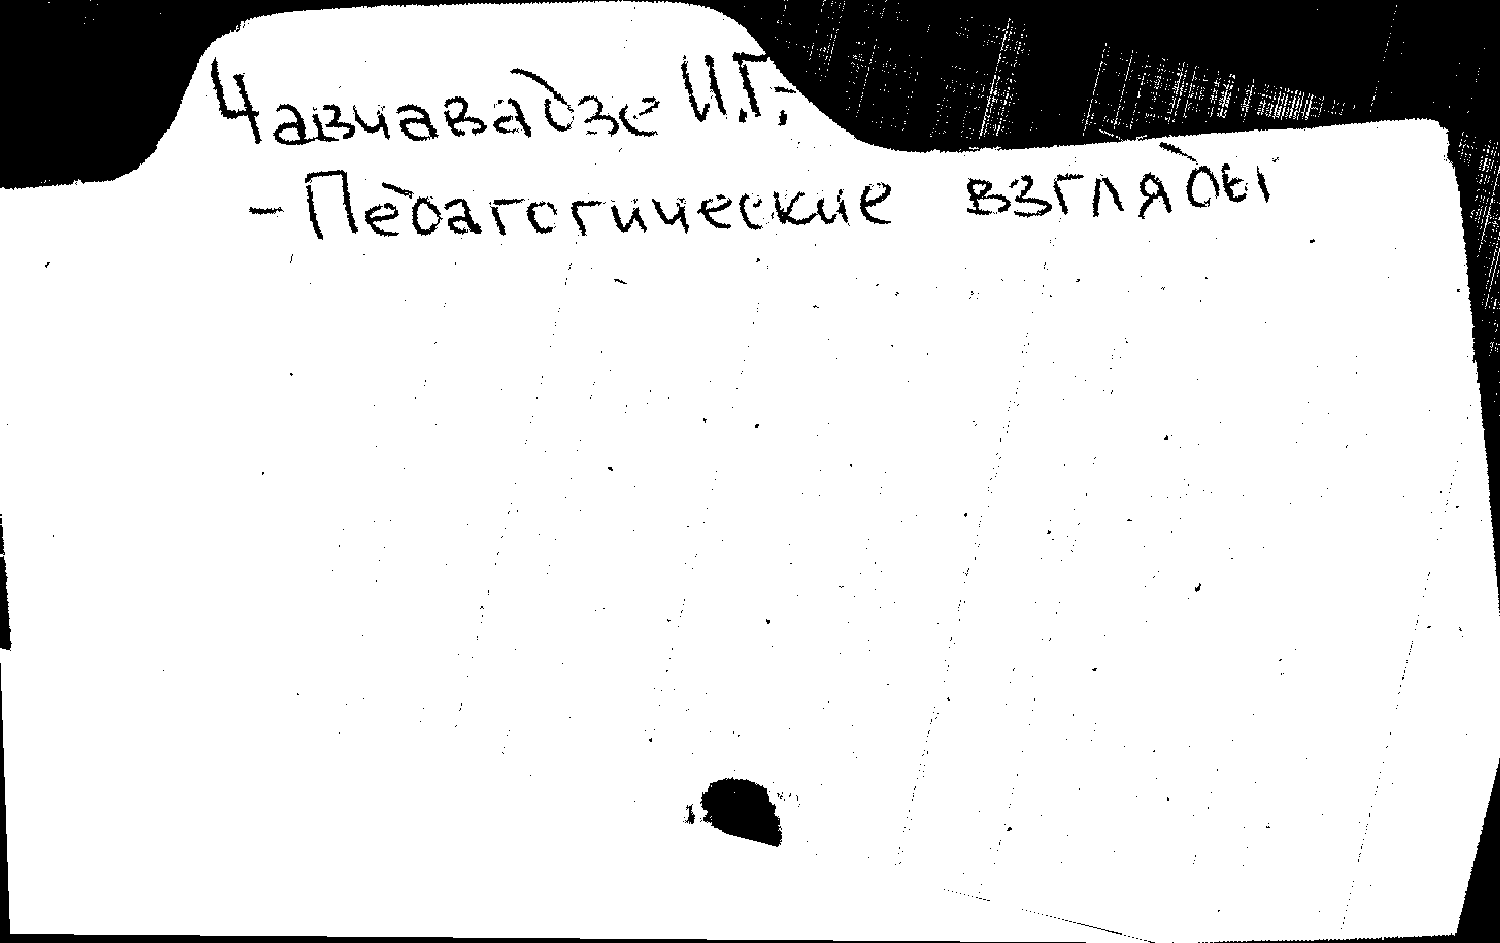 Чавчавадзе И.Г.-
- Педагогические взгляды